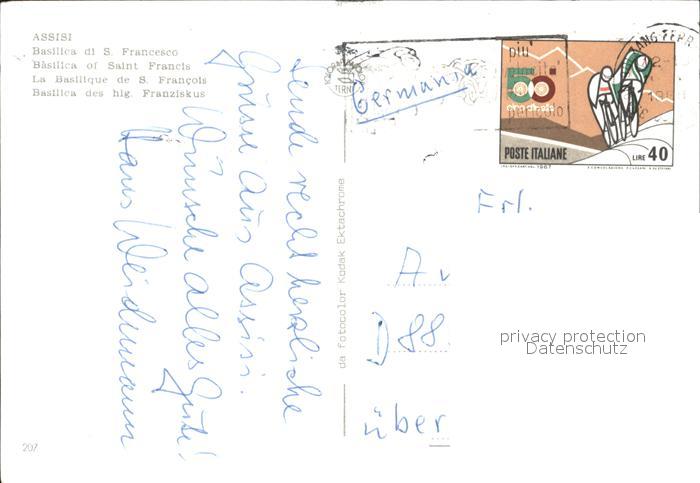 ASSISI
Basilica di S. Francesco
Basilica of Saint Francis
La Basilique de S. François
Basilica des hlg. Franziskus
Sende recht herzliche
Grüsse aus Assisi.
Wünsche alles Gute!
Hans Weidmann
da fotocolor Kodak Ektachrome
Germania
più
pericolo
50
giro d'italia
POSTE ITALIANE
LIRE 40
1967
Frl.
Av
D 88
über
privacy protection
Datenschutz
207